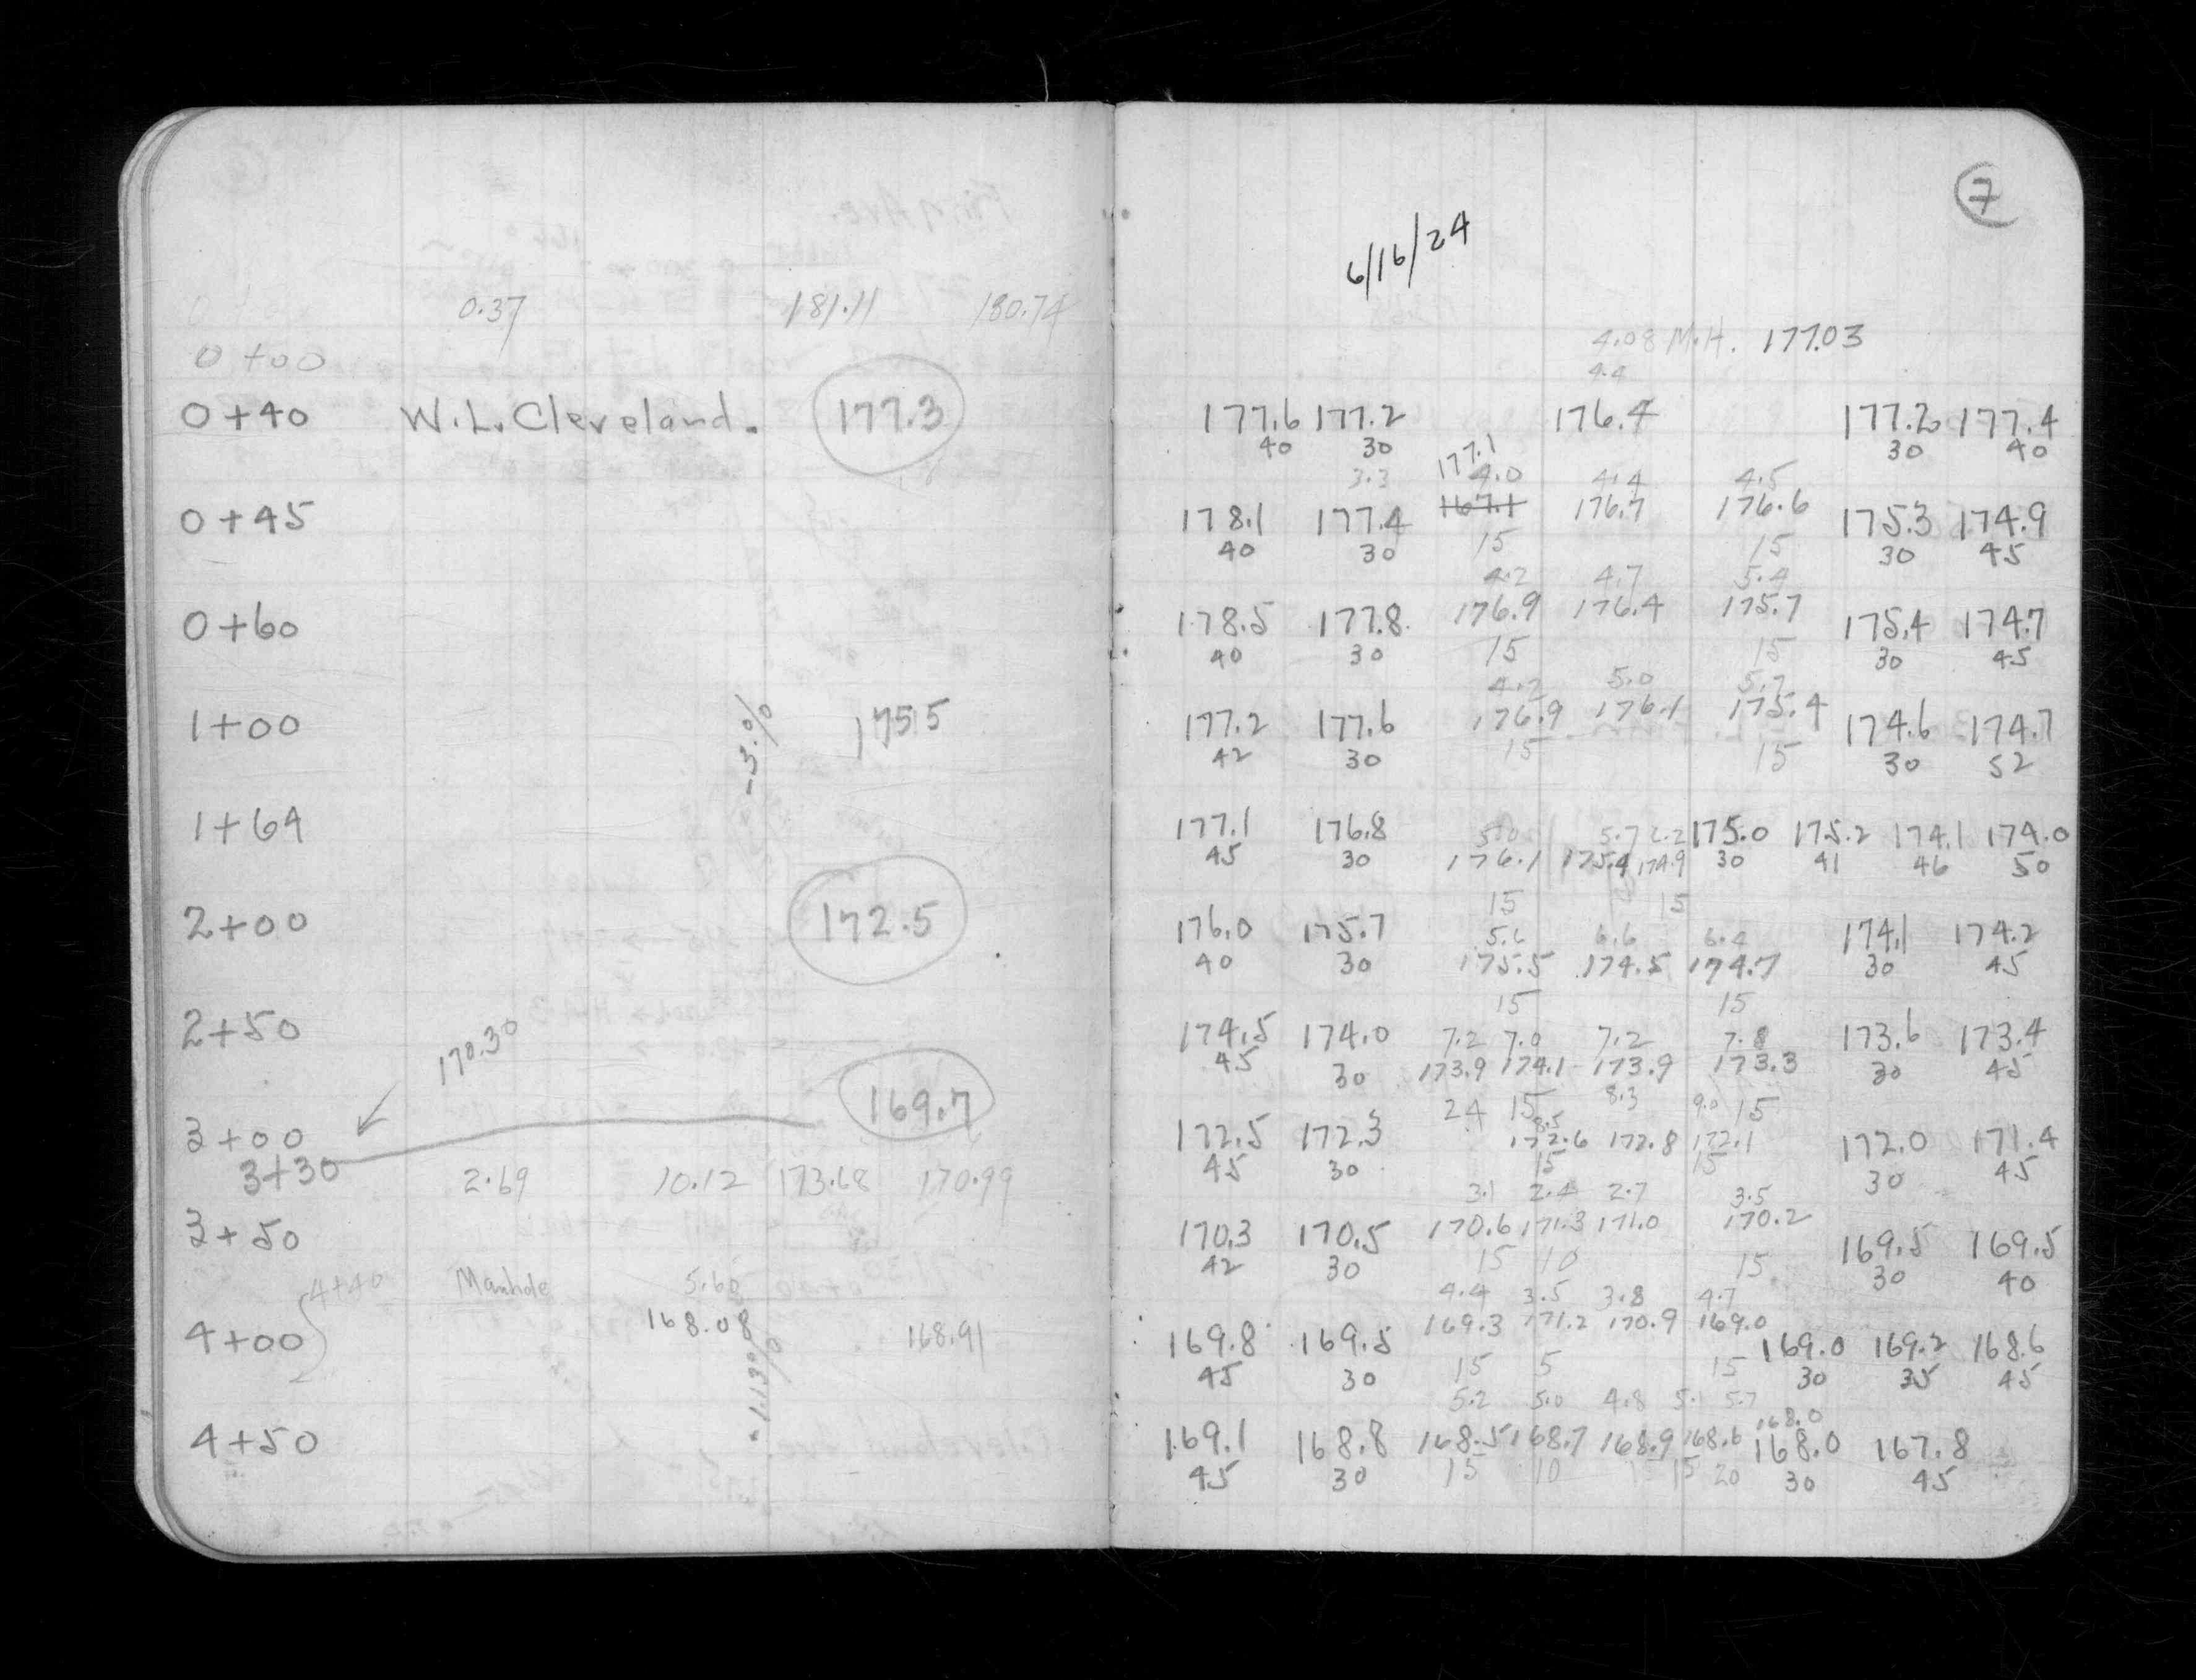 7
6/16/24
0.37 181.11 180.74
0+00 4.08 M.H. 177.03
4.4
0+40 W.L. Cleveland. 177.3 177.6 177.2 176.4 177.2 177.4
40 30 30 40
177.1
3.3 4.0 4.4 4.5
0+45 178.1 177.4 167.1 176.7 176.6 175.3 174.9
40 30 15 15 30 45
4.2 4.7 5.4
0+60 178.5 177.8 176.9 176.4 175.7 175.4 174.7
40 30 15 15 30 45
4.2 5.0 5.7
1+00 -3.% 175.5 177.2 177.6 176.9 176.1 175.4 174.6 174.7
42 30 15 15 30 52
1+64 177.1 176.8 5.0 5.7 6.2 175.0 175.2 174.1 174.0
45 30 176.1 175.4 174.9 30 41 46 50
15 15
2+00 172.5 176.0 175.7 5.6 6.6 6.4 174.1 174.2
40 30 175.5 174.5 174.7 30 45
15 15
2+50 174.5 174.0 7.2 7.0 7.2 7.8 173.6 173.4
170.30
45 30 173.9 174.1 173.9 173.3 30 45
24 15 8.3 9.0 15
169.7
8.5
3+00 172.5 172.3 172.6 172.8 172.1 172.0 171.4
45 30 15 15 30 45
3+30 2.69 10.12 173.68 170.99
3.1 2.4 2.7 3.5
3+50 170.3 170.5 170.6 171.3 171.0 170.2 169.5 169.5
42 30 15 10 15 30 40
4+40 Manhole 5.60
4.4 3.5 3.8 4.7
168.08
4+00 168.91 169.8 169.5 169.3 171.2 170.9 169.0 169.0 169.2 168.6
45 30 15 5 15 30 35 45
-1.13%
5.2 5.0 4.8 5.1 5.7
168.0
4+50 169.1 168.8 168.5 168.7 168.9 168.6 168.0 167.8
45 30 15 10 15 20 30 45